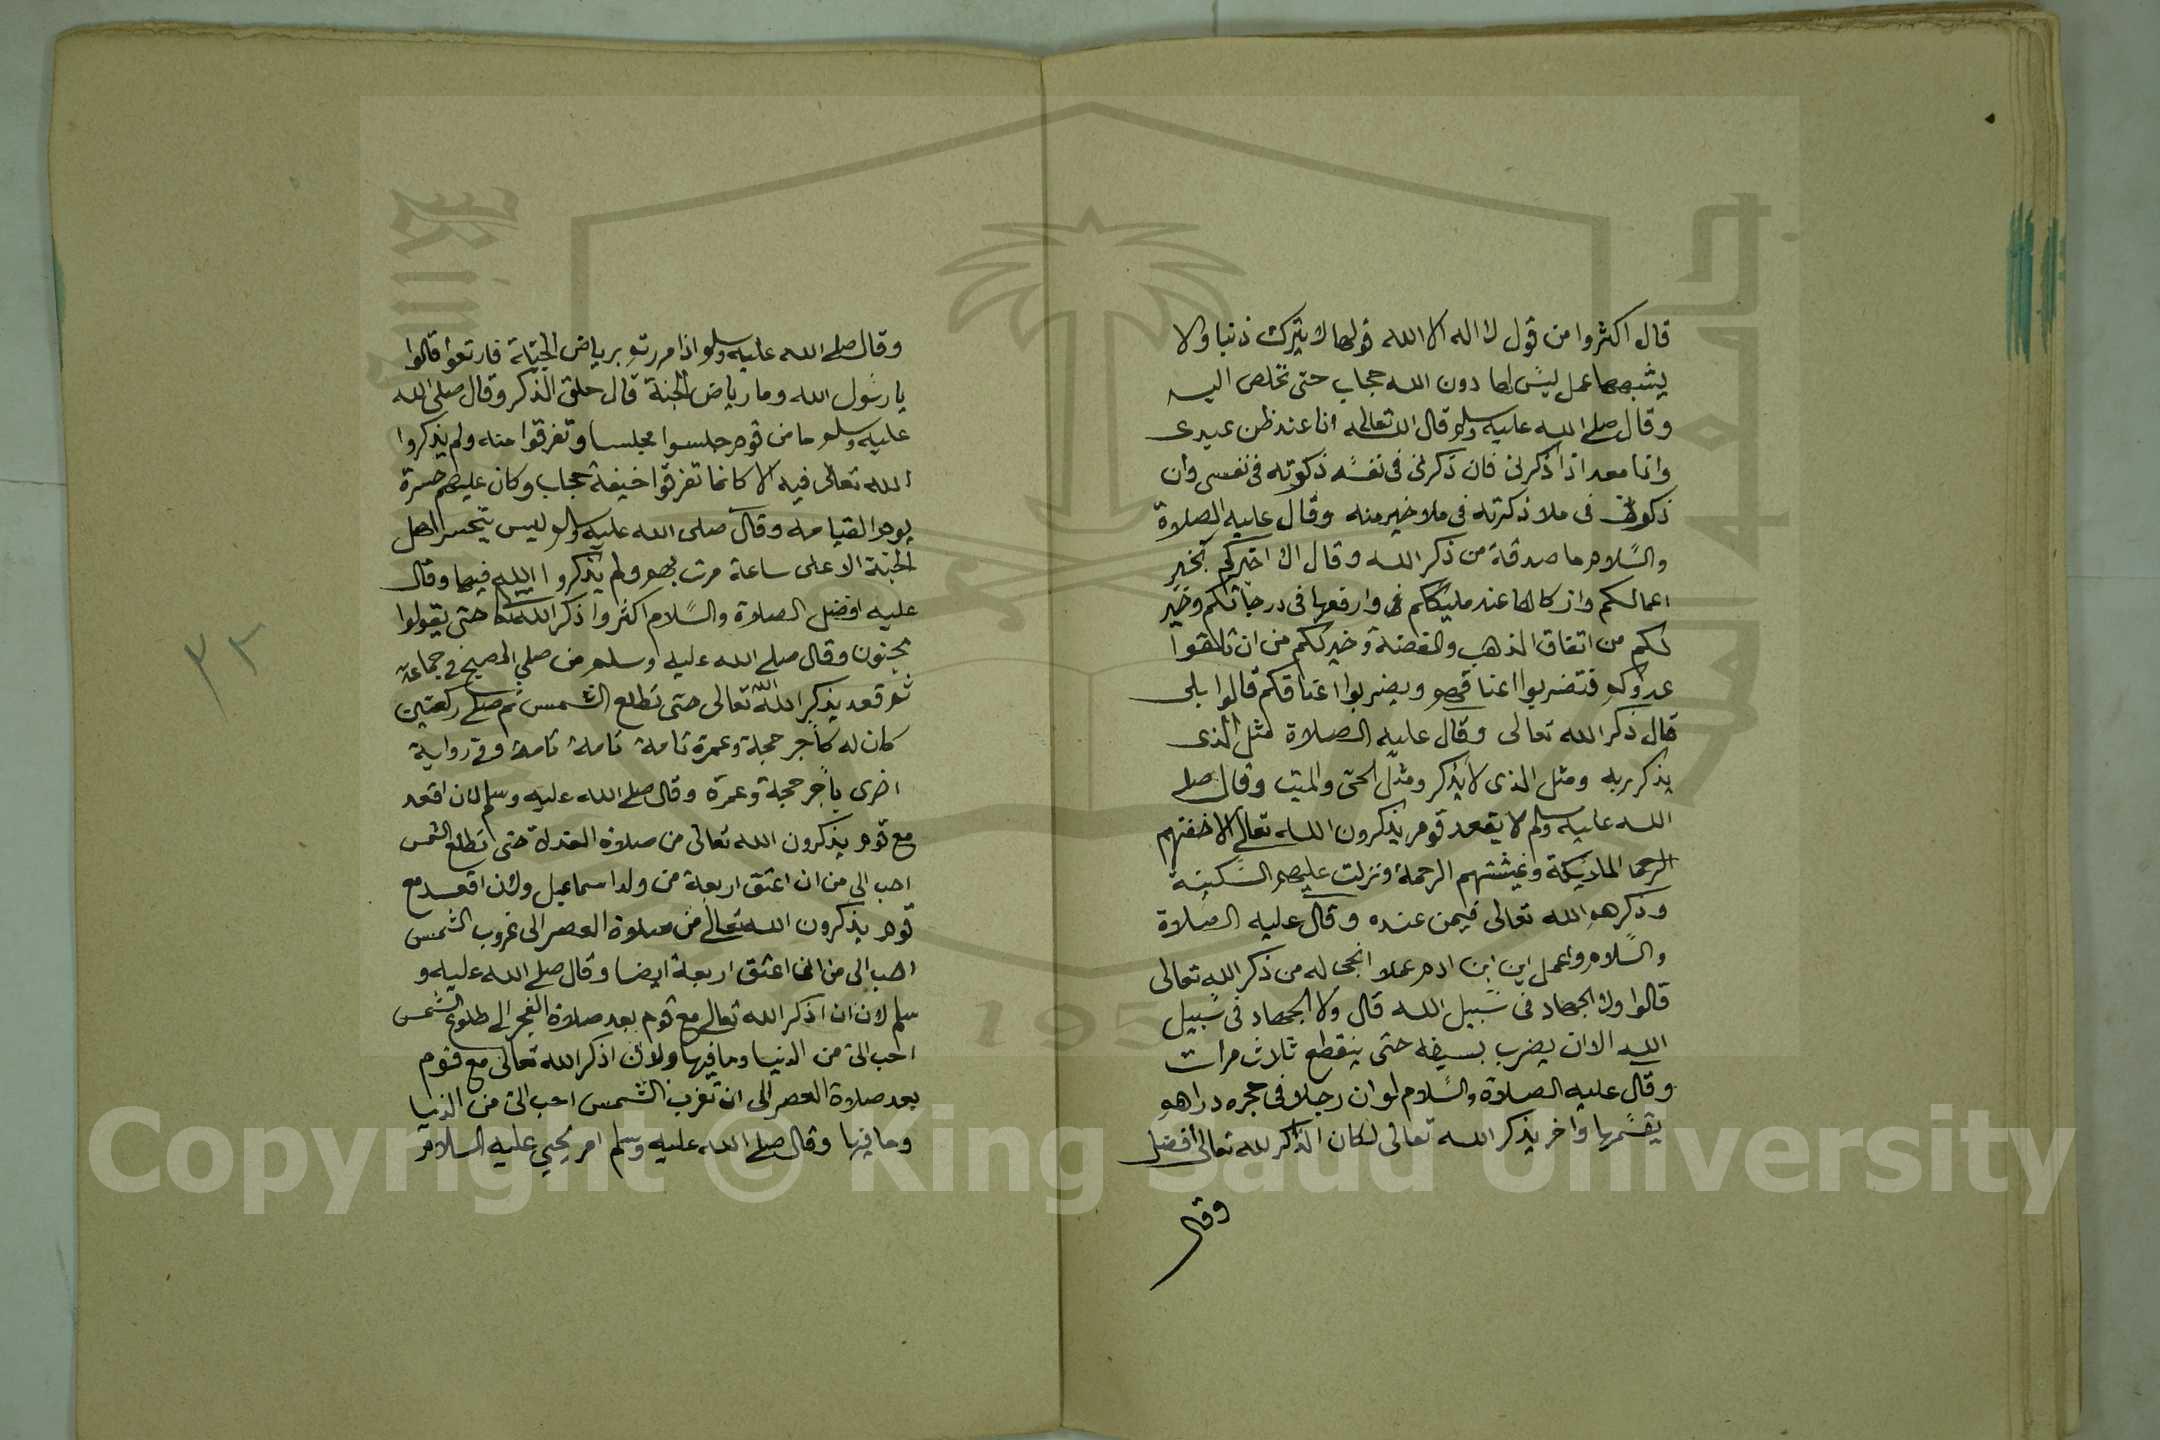 قال اكثروا من قول لا اله الا الله قولها لا يترك ذنبا ولا
يشبهها عمل ليس لها دون الله حجاب حتى تخلص اليه
وقال صلى الله عليه وسلم قال الله تعالى انا عند ظن عبدى
وانا معه اذا ذكرنى فان ذكرنى فى نفسه ذكرته فى نفسى وان
ذكرنى فى ملا ذكرته فى ملا خير منه وقال عليه الصلاة
والسلام ما صدقة من ذكر الله وقال الا اخبركم بخير
اعمالكم وازكاها عند مليككم وارفعها فى درجاتكم وخير
لكم من انفاق الذهب والفضة وخير لكم من ان تلقوا
عدوكم فتضربوا اعناقهم ويضربوا اعناقكم قالوا بلى
قال ذكر الله تعالى وقال عليه الصلاة مثل الذى
يذكر ربه ومثل الذى لا يذكر ومثل الحى والميت وقال صلى
الله عليه وسلم لا يقعد قوم يذكرون الله تعالى الا حفتهم
الملائيكة وغيشتهم الرحمة ونزلت عليهم السكينة
وذكرهم الله تعالى فيمن عنده وقال عليه الصلاة
والسلام واعمل ابن ادم عملا انجى له من ذكر الله تعالى
قالوا ولا الجهاد فى سبيل الله قال ولا الجهاد فى سبيل
الله الا ان يضرب بسيفه حتى ينقطع ثلاث مرات
وقال عليه الصلاة والسلام لو ان رجلا فى حجره دراهم
يقسمها واخر يذكر الله تعالى لكان الذاكر لله تعالى افضل
وقال
وقال صلى الله عليه وسلم اذا مررتم برياض الجنة فارتعوا قالوا
يا رسول الله وما رياض الجنة قال حلق الذكر وقال صلى الله
عليه وسلم ما من قوم جلسوا مجلسا وتفرقوا منه ولم يذكروا
الله تعالى فيه الا كانما تفرقوا وكان عليهم حسرة
يوم القيامة وقال صلى الله عليه وسلم ليس يتحسر اهل
الجنة الا على ساعة مرت بهم ولم يذكروا الله فيها وقال
عليه افضل الصلاة والسلام اكثروا ذكر الله حتى يقولوا
مجنون وقال صلى الله عليه وسلم من صلى الصبح فى جماعة
ثم قعد يذكر الله تعالى حتى تطلع الشمس ثم صلى ركعتين
كان له كاجر حجة وعمرة تامة تامة تامة وفى رواية
اخرى باجر حجة وعمرة وقال صلى الله عليه وسلم لان اقعد
مع قوم يذكرون الله تعالى من صلاة الغداة حتى تطلع الشمس
احب الى من ان اعتق اربعة من ولد اسماعيل ولان اقعد مع
قوم يذكرون الله تعالى من صلوة العصر الى غروب الشمس
احب الى من ان اعتق اربعة ايضا وقال صلى الله عليه و
سلم لان ان اذكر الله تعالى مع قوم بعد صلاة الفجر الى طلوع الشمس
احب الى من الدنيا وما فيها ولان اذكر الله تعالى مع قوم
بعد صلاة العصر الى ان تغرب الشمس احب الى من الدنيا
وما فيها وقال صلى الله عليه وسلم امر يحيى عليه السلام
٣٢
Copyright © King Saud University